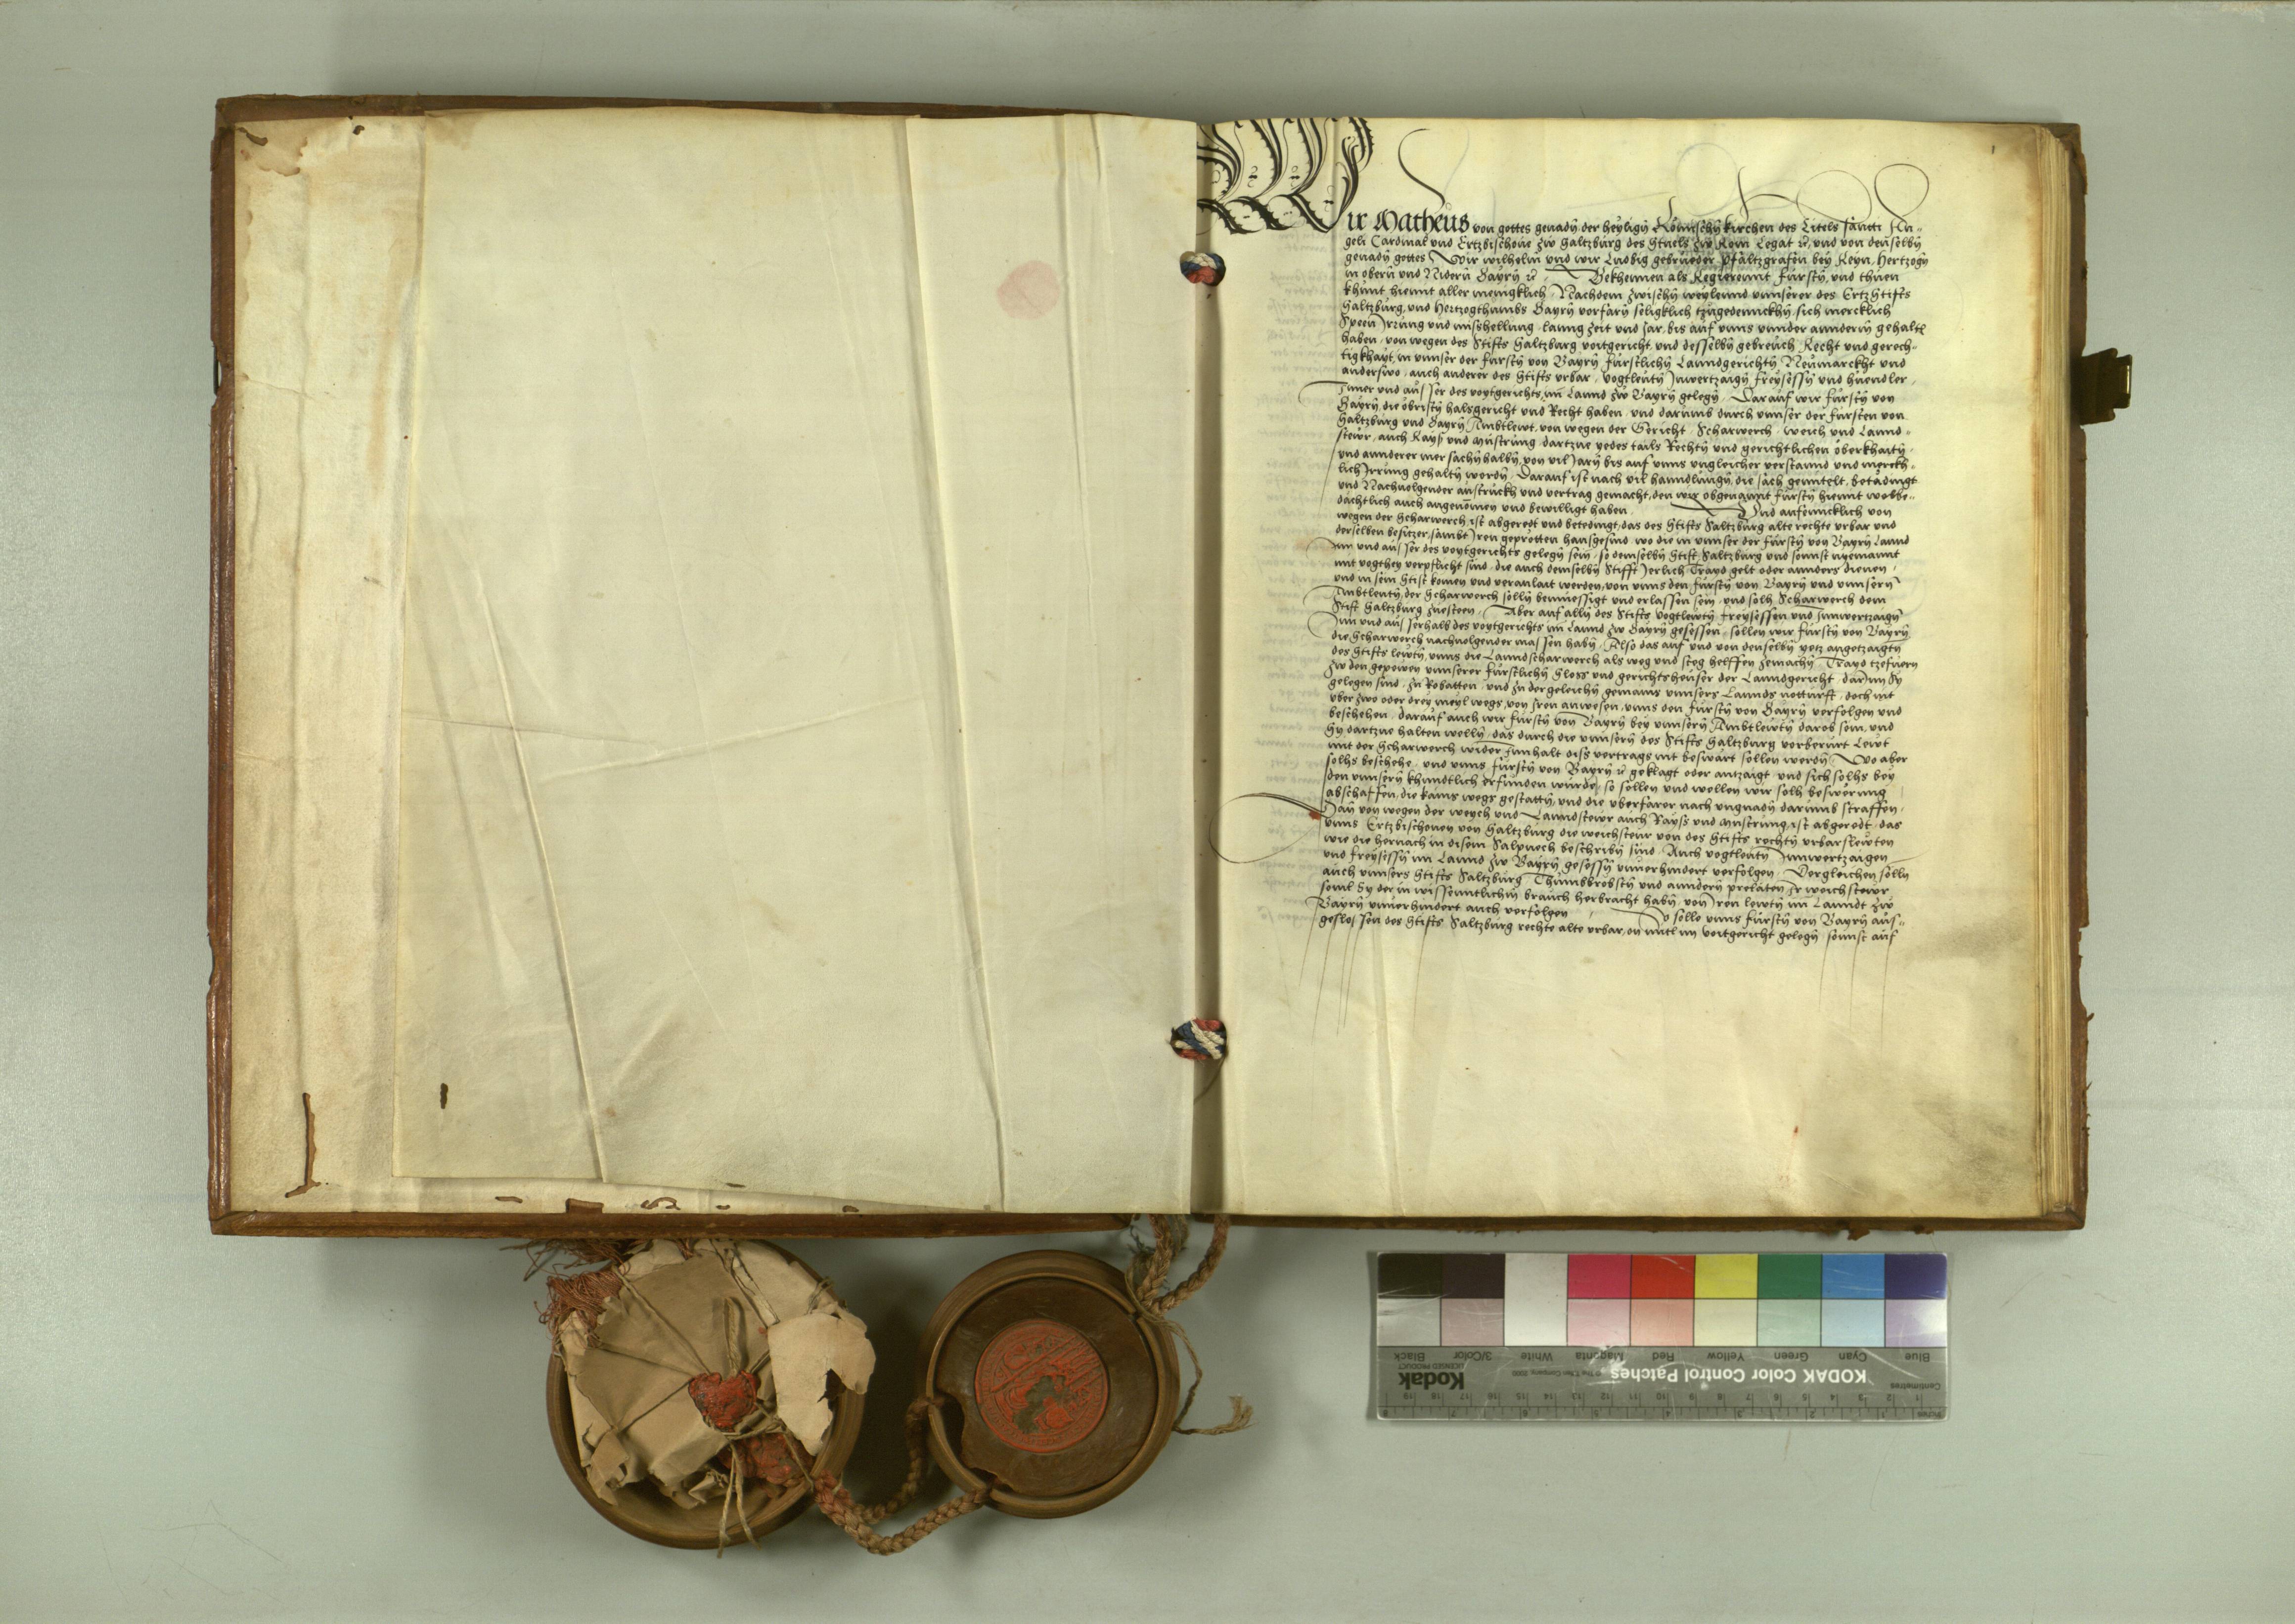 1
Wir Matheus von gottes genadn̄ der heylign̄ Römischn̄ kirchen des Titels sancti An-
geli Cardinal und Ertzbischove zw Saltzburg des Stuels zw Rom Legat ꝛc, und von denselbn̄
genadn̄ gottes Wir wilhelm und wir Ludbig gebrueder Pfaltzgrafen bey Reyn, Hertzogn̄
in obern̄ und Nidern̄ Bayrn̄ ꝛc, Bekhennen als Regierennt fürstn̄, und thuen
khunt hiemit aller menigklich, Nachdem zwischn̄ weylennd unnserer des Ertzstiffts
Saltzburg, und Hertzogthumbs Bayrn̄ vorfarn̄ seligklich tzugedennckhn̄, sich mercklich
Speen Irrung und misshellung, lanng zeit und Jar, bis auf unns unnder anndern̄ gehaltn̄
haben, von wegen des Stiffts Saltzburg voitgericht, und desselbn̄ gebreuch, Recht und gerech-
tigkhayt, in unnser der fürstn̄ von Bayrn̄ fürstlichn̄ Lanndgerichtn̄ Neumarckht und
anderswo, auch anderer des Stiffts urbar, vogtleutn̄ Inwertzaign̄ freysessn̄ und hiendler,
Inner und ausser des voytgerichts im Lannd zw Bayrn̄ gelegn̄, Darauf wir fürstn̄ von
Bayrn̄, die obristn̄ halsgericht und Recht haben, und darumb durch unnser der fürsten von
Saltzburg und Bayrn̄ Ambtlewt, von wegen der Gericht, Scharwerch, weich und Lannd-
stewr, auch Rayß und Mustrung, dartzue yedes tails Rechtn̄ und gerichtlichen oberkhaitn̄,
und annderer mer sachn̄ halbn̄, von vil Jarn̄ bis auf unns ungleicher verstannd und merckh-
lich Irrung gehaltn̄ wordn̄, Darauf ist nach vil hanndlungn̄, die sach gemitelt, betädingt
und Nachvolgender austruckh und vertrag gemacht, den wir obgenannt fürstn̄ hiemit wolbe-
dächtlich auch angenomen und bewilligt haben Und anfenncklich von
wegen der Scharwerch, ist abgeredt und betedingt, das des Stiffts Saltzburg alte rechte urbar und
derselben besitzer, sambt Iren geprotten hausgesind, wo die in unnser der fürstn̄ von Bayrn̄ Lannd
Inn und ausser des voytgerichts gelegn̄ sein, so demselbn̄ Stift Saltzburg und sonnst nyemannt
mit vogthey verpflicht sind, die auch demselbn̄ Stifft Jerlich Trayd gelt oder annders dienen,
und in sein Stift komen und veranlait werden, von unns den fürstn̄ von Bayrn̄ und unnsern̄
Ambtleutn̄, der Scharwerch solln̄ bemuessigt und erlassen sein, und solh Scharwerch dem
Stift Saltzburg zuesteen, Aber auf alln̄ des Stiffts vogtlewtn̄ freysessen und Innwertzaign̄
Inn und ausserhalb des voytgerichts im Lannd zw Bayrn̄ gesessen, sollen wir fürstn̄ von Bayrn̄
die Scharwerch nachvolgender massen habn̄, Also das auf und von denselbn̄ yetz angetzaigtn̄
des Stiffts lewtn̄, unns die Lanndscharwerch als weg und steg helffen zemachn̄, Trayd tzefuern
zw den gepewen unnserer fürstlichn̄ Sloss und gerichtsheuser der Lanndgericht, darinn Sy
gelegen sind, zu Robatten, und zu dergeleichn̄ gemains unnsers Lannds notturft, doch nit
uber zwo oder drey meyl wegs, von Iren anwesen, unns den fürstn̄ von Bayrn̄ verfolgen und
beschehen, darauf auch wir fürstn̄ von Bayrn̄ bey unnsern̄ Ambtlewtn̄ darob sein, und
Sy dartzue halten welln̄, das durch die unnsern̄ des Stiffts Saltzburg vorberurt Lewt
mit der Scharwerch wider Innhalt diss vertrags nit beswärt sollen werdn̄ Wo aber
solhs beschehe, und unns fürstn̄ von Bayrn̄ ꝛc geklagt oder antzaigt, und sich solhs bey
den unnsern̄ khundtlich erfunden wurde, so sollen und wellen wir solh beswerung
abschaffen, die kains wegs gestattn̄, und die uberfarer nach ungnadn̄ darumb straffen,
Dan von wegen der weych und Lanndstewr auch Rayss und Mustrung, ist abgeredt, das
unns Ertzbischoven von Saltzburg die weichsteur von des Stiffts rechtn̄ urbarslewten
wie die hernach in disem Salpuech beschribn̄ sind, Auch vogtleutn̄ Innwertzaigen
und freysessn̄ im Lannd zw Bayrn̄ gesessn̄ unverhindert verfolgen, Dergleichen solln̄
auch unnsers Stiffts Saltzburg Thumbbrobstn̄ und anndern̄ prelaten Ir weichstewr
sovil Sy der in wissenntlichn̄ brauch herbracht habn̄, von Iren lewtn̄ im Lanndt zw
Bayrn̄ unverhindert auch verfolgen So solle unns fürstn̄ von Bayrn̄ aus-
geslossen des Stiffts Saltzburg rechte alte urbar, im voitgericht gelegn̄, sonnst auf
KODAK Color Control Patches
Kodak
LICENSED PRODUCT
Blue Cyan Green Yellow Red Magenta White 3/Color Black
Centimetres